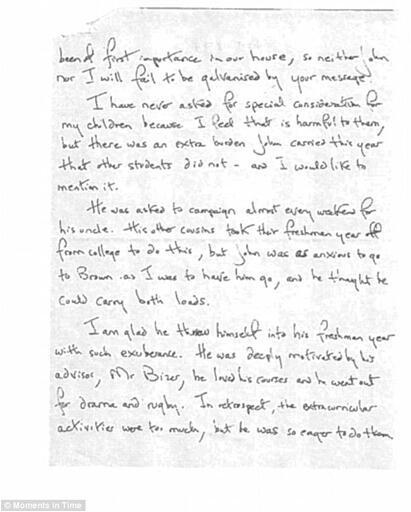 been of first importance in our house, so neither John
nor I will fail to be galvanised by your message!
I have never asked for special consideration for
my children because I feel that is harmful to them,
but there was an extra burden John carried this year
that other students did not - and I would like to
mention it.
He was asked to campaign almost every weekend for
his uncle. His other cousins took their freshman year off
from college to do this, but John was as anxious to go
to Brown as I was to have him go, and he thought he
could carry both loads.
I am glad he threw himself into his freshman year
with such exuberance. He was deeply motivated by his
advisor, Mr Bizer, he loved his courses and he went out
for drama and rugby. In retrospect, the extracurricular
activities were too much, but he was so eager to do them
© Moments in Time